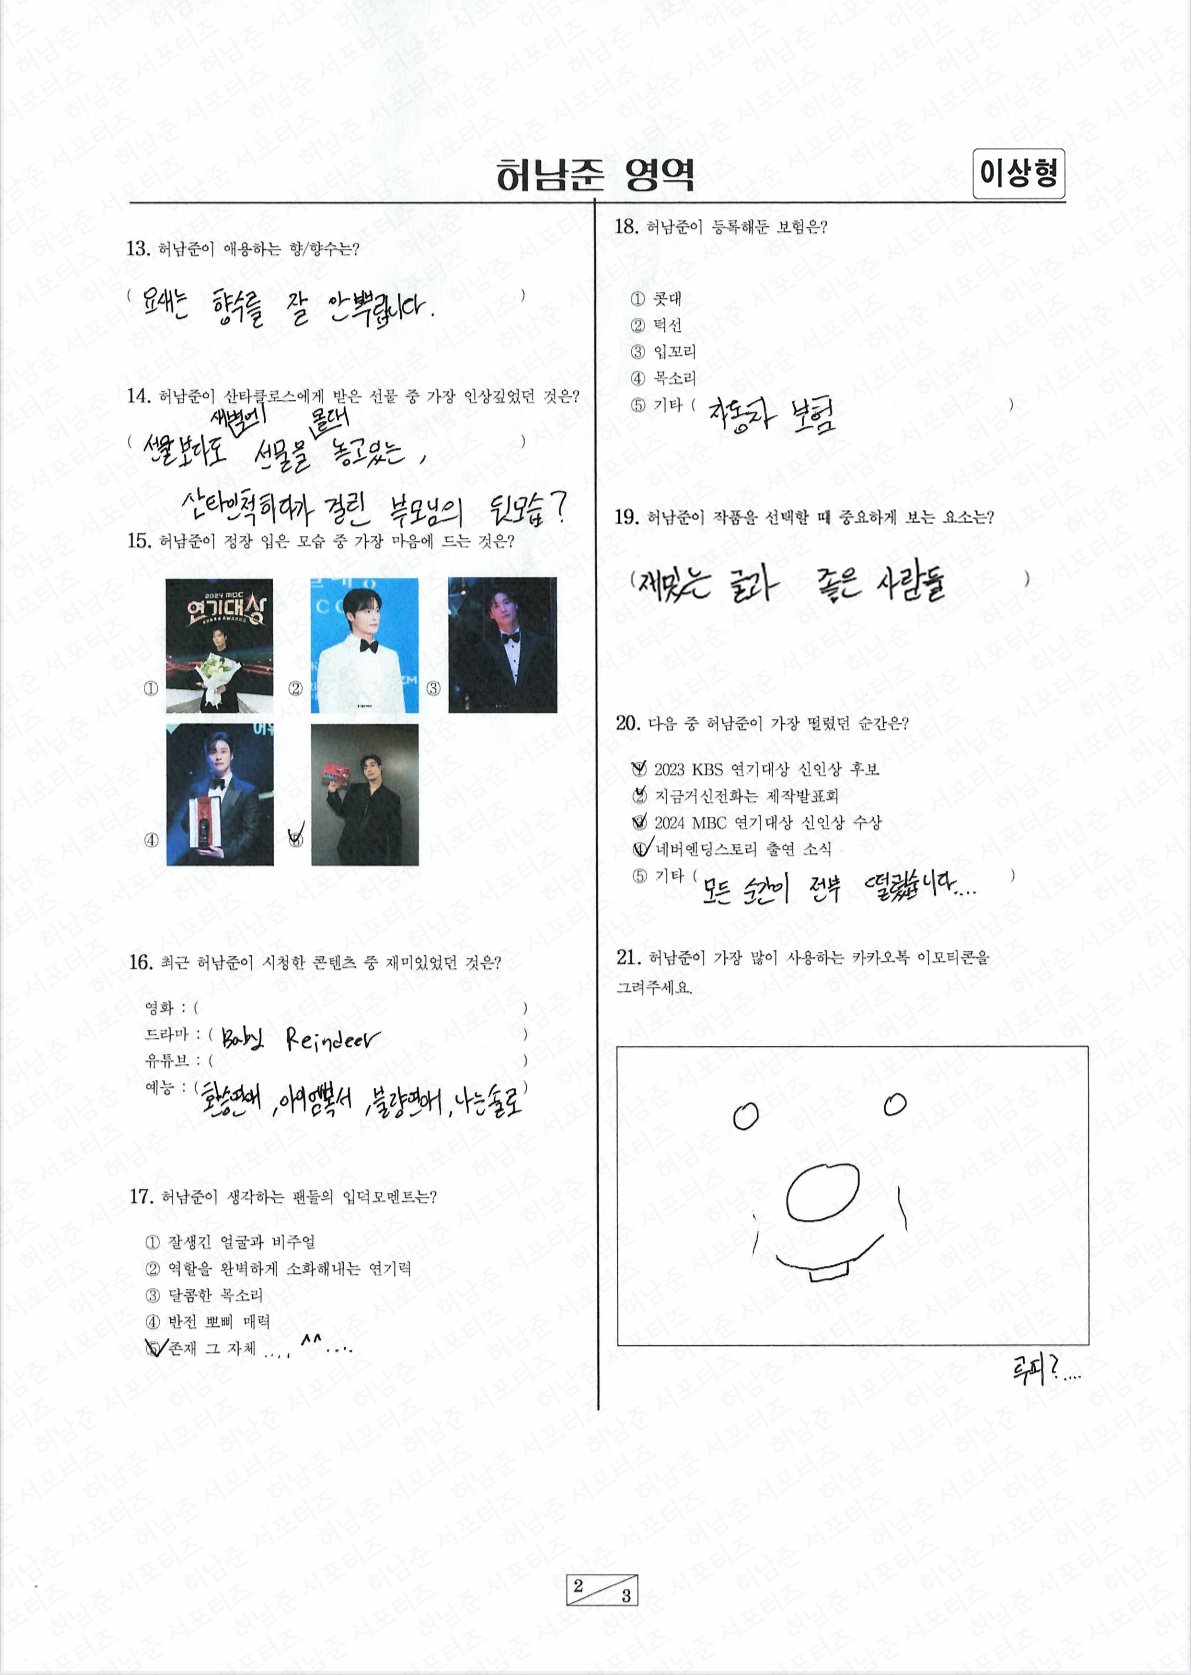 허남준 영역
이상형
13. 허남준이 애용하는 향/향수는?
( 요새는 향수를 잘 안뿌립니다. )
14. 허남준이 산타클로스에게 받은 선물 중 가장 인상깊었던 것은?
새벽에 몰래
( 선물보다도 선물을 놓고있는, )
산타인척하다가 걸린 부모님의 뒷모습?
15. 허남준이 정장 입은 모습 중 가장 마음에 드는 것은?
2024 MBC
연기대상
① ② ③
④ ⑤
16. 최근 허남준이 시청한 콘텐츠 중 재미있었던 것은?
영화 : ( )
드라마 : ( Baby Reindeer )
유튜브 : ( )
예능 : ( 환승연애, 아이엠복서, 불량연애, 나는솔로 )
17. 허남준이 생각하는 팬들의 입덕모멘트는?
① 잘생긴 얼굴과 비주얼
② 역할을 완벽하게 소화해내는 연기력
③ 달콤한 목소리
④ 반전 뽀삐 매력
⑤ 존재 그 자체 .... ^^....
18. 허남준이 등록해둔 보험은?
① 콧대
② 턱선
③ 입꼬리
④ 목소리
⑤ 기타 ( 자동차 보험 )
19. 허남준이 작품을 선택할 때 중요하게 보는 요소는?
( 재밌는 글과 좋은 사람들 )
20. 다음 중 허남준이 가장 떨렸던 순간은?
① 2023 KBS 연기대상 신인상 후보
② 지금거신전화는 제작발표회
③ 2024 MBC 연기대상 신인상 수상
④ 네버엔딩스토리 출연 소식
⑤ 기타 ( 모든 순간이 전부 떨렸습니다.... )
21. 허남준이 가장 많이 사용하는 카카오톡 이모티콘을
그려주세요.
루피?....
2 3
허남준 서포터즈